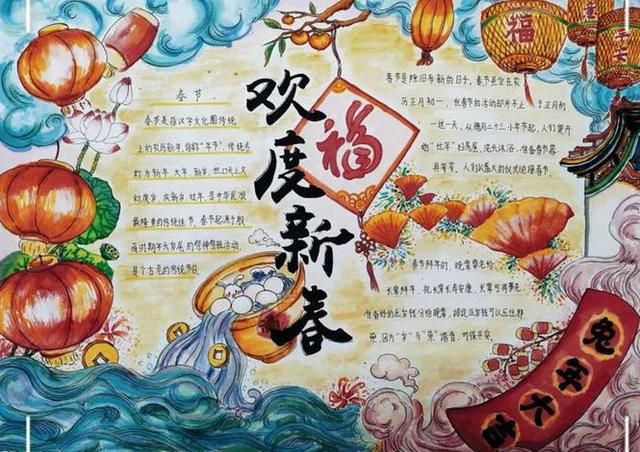 春节
春节是指汉字文化圈传统
上的农历新年,俗称“年节”,传统名
称为新年、大年、新岁,但口头上又
称度岁、庆新岁、过年,是中华民族
最隆重的传统佳节。春节起源于殷
商时期年头岁尾的祭神祭祖活动,
是个古老的传统节日。
欢度新春
福
福
平安
春节是除旧布新的日子,春节虽定在农
历正月初一,但春节的活动却并不止于正月初
一这一天,从腊月二十三小年节起,人们便开
始“忙年”:扫房屋、洗头沐浴、准备年节器
具等等,人们以盛大的仪式迎接春节。
春节拜年时,晚辈要先给
长辈拜年,祝长辈长寿安康,长辈可将事先
准备好的压岁钱分给晚辈,据说压岁钱可以压住邪
祟,因为“岁”与“祟”谐音,可保平安。
兔年大吉